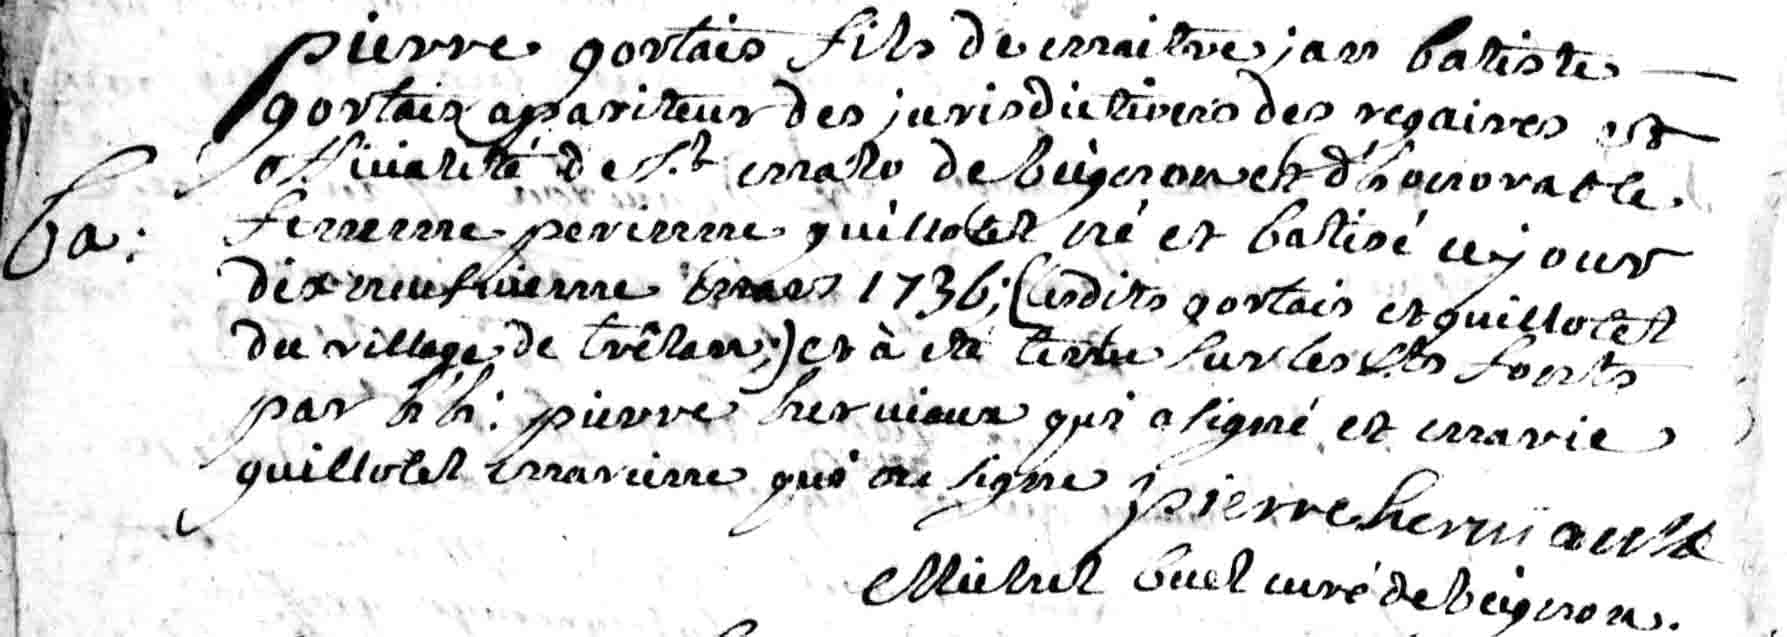 pierre gortais fils de maitre jan batiste
gortais apariteur des jurisdictions des regaires et
officialité de St malo de beignon et d'honorable
ba:
femme perinne guillotel né et batisé ce jour
dix neufvieme mars 1736; (lesdits gortais et guillotel
du village de trêlan;) et à été tenu sur les Sts fonts
par h h: pierre herviaux qui a signé et marie
guillotel maraine qui ne signe
pierre herviault
Michel buel curé de beignon.